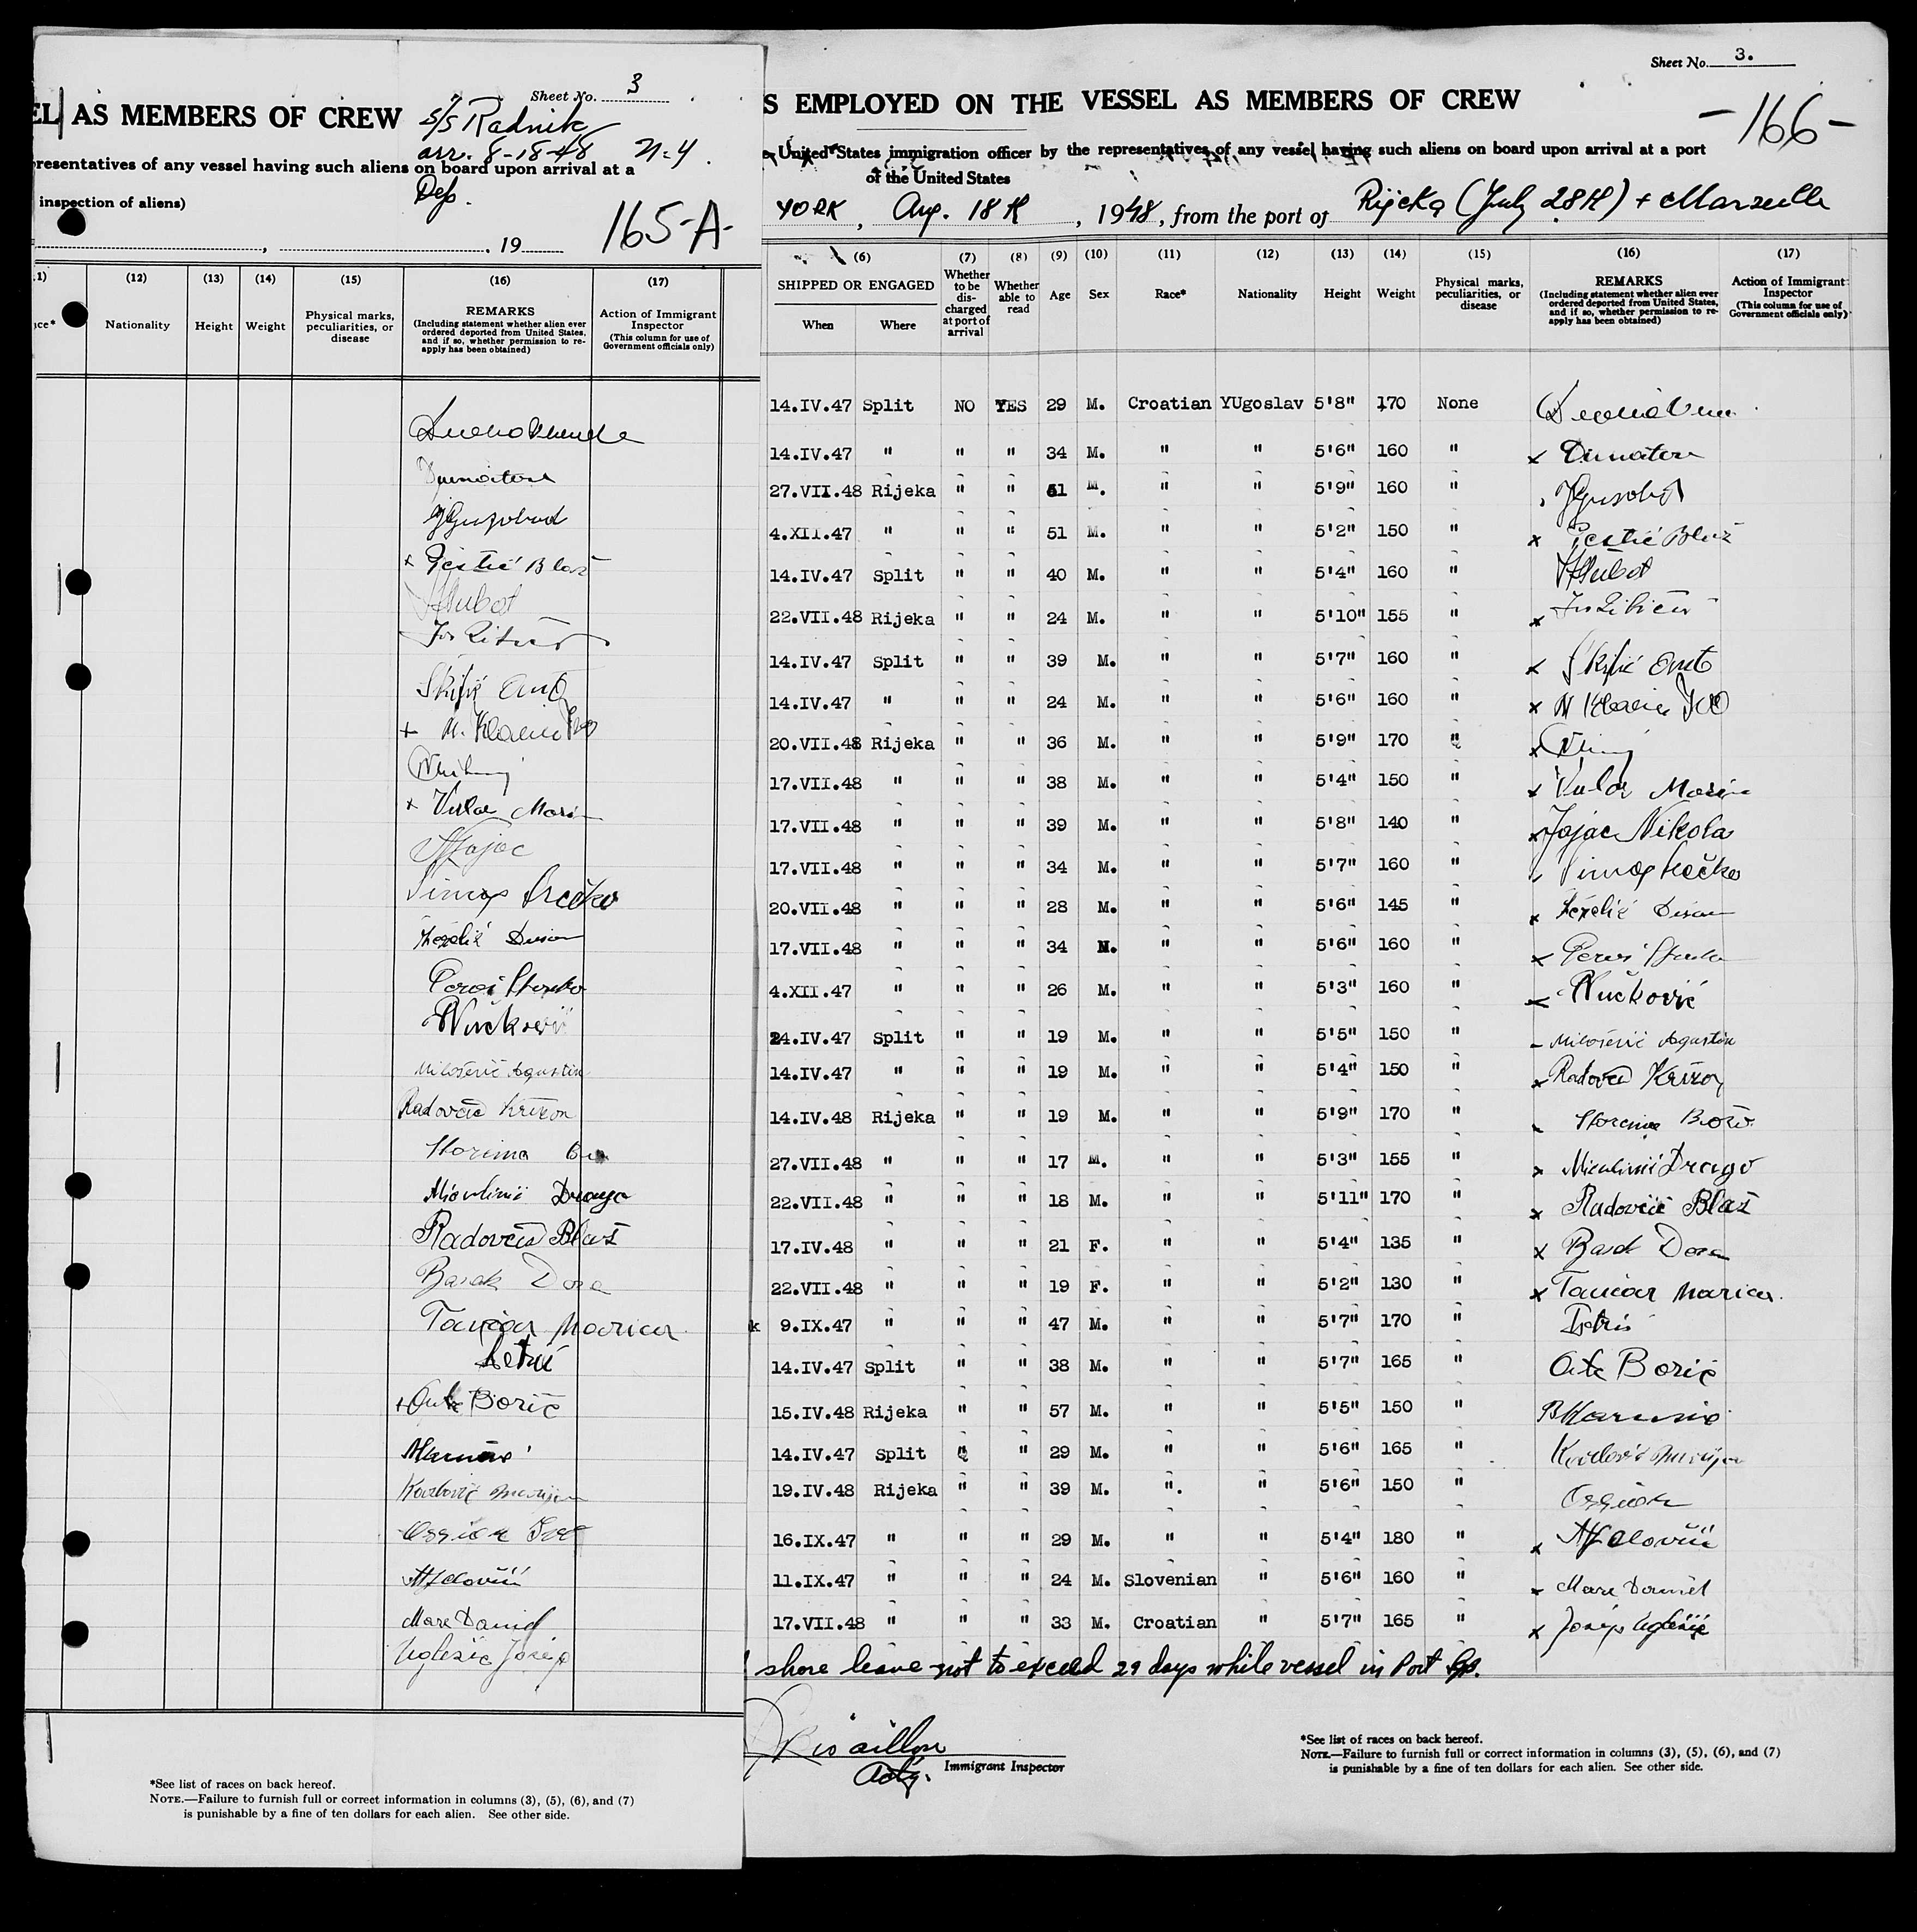 Sheet No. 3
EL AS MEMBERS OF CREW S/S Radnik
arr. 8-18-48 N.Y.
resentatives of any vessel having such aliens on board upon arrival at a
Dep.
inspection of aliens)
, 19 165-A-
1) (12) (13) (14) (15) (16) (17)
ce* Nationality Height Weight Physical marks, peculiarities, or disease REMARKS (Including statement whether alien ever ordered deported from United States, and if so, whether permission to re-apply has been obtained) Action of Immigrant Inspector (This column for use of Government officials only)
Skifić Ante
Marin
Srečko
Vučković
Milošević Agustin
Radovčić Krizon
Storima
Miculinić Drago
Radovčić Blaž
Basak Dora
Tančar Marica
Petrić
+ Ante Borić
Karlović
Mare Daniel
Uglešić Josip
*See list of races on back hereof.
NOTE.—Failure to furnish full or correct information in columns (3), (5), (6), and (7)
is punishable by a fine of ten dollars for each alien. See other side.
Sheet No. 3.
S EMPLOYED ON THE VESSEL AS MEMBERS OF CREW
-166-
United States immigration officer by the representatives of any vessel having such aliens on board upon arrival at a port
of the United States
YORK, Aug. 18th, 1948, from the port of Rijeka (July 28th) + Marseille
(6) (7) (8) (9) (10) (11) (12) (13) (14) (15) (16) (17)
SHIPPED OR ENGAGED When Where Whether to be discharged at port of arrival Whether able to read Age Sex Race* Nationality Height Weight Physical marks, peculiarities, or disease REMARKS (Including statement whether alien ever ordered deported from United States, and if so, whether permission to re-apply has been obtained) Action of Immigrant Inspector (This column for use of Government officials only)
14.IV.47 Split NO YES 29 M. Croatian YUgoslav 5'8" 170 None
14.IV.47 " " " 34 M. " " 5'6" 160 " x
27.VII.48 Rijeka " " 51 M. " " 5'9" 160 "
4.XII.47 " " " 51 M. " " 5'2" 150 " x Blaž
14.IV.47 Split " " 40 M. " " 5'4" 160 "
22.VII.48 Rijeka " " 24 M. " " 5'10" 155 " x
14.IV.47 Split " " 39 M. " " 5'7" 160 " x Skifić Ante
14.IV.47 " " " 24 M. " " 5'6" 160 " x
20.VII.48 Rijeka " " 36 M. " " 5'9" 170 " x
17.VII.48 " " " 38 M. " " 5'4" 150 " x Marin
17.VII.48 " " " 39 M. " " 5'8" 140 " x Jajac Nikola
17.VII.48 " " " 34 M. " " 5'7" 160 " Srečko
20.VII.48 " " " 28 M. " " 5'6" 145 " x
17.VII.48 " " " 34 M. " " 5'6" 160 " x
4.XII.47 " " " 26 M. " " 5'3" 160 " x Vučković
24.IV.47 Split " " 19 M. " " 5'5" 150 " Milošević Agustin
14.IV.47 " " " 19 M. " " 5'4" 150 " x Radovčić Krizon
14.IV.48 Rijeka " " 19 M. " " 5'9" 170 " Božo
27.VII.48 " " " 17 M. " " 5'3" 155 " x Miculinić Drago
22.VII.48 " " " 18 M. " " 5'11" 170 " x Radovčić Blaž
17.IV.48 " " " 21 F. " " 5'4" 135 " x Basak Dora
22.VII.48 " " " 19 F. " " 5'2" 130 " x Tančar Marica
k 9.IX.47 " " " 47 M. " " 5'7" 170 " Petrić
14.IV.47 Split " " 38 M. " " 5'7" 165 " Ante Borić
15.IV.48 Rijeka " " 57 M. " " 5'5" 150 "
14.IV.47 Split " " 29 M. " " 5'6" 165 " Karlović
19.IV.48 Rijeka " " 39 M. ". " 5'6" 150 "
16.IX.47 " " " 29 M. " " 5'4" 180 " x
11.IX.47 " " " 24 M. Slovenian " 5'6" 160 " x Mare Daniel
17.VII.48 " " " 33 M. Croatian " 5'7" 165 " x Josip Uglešić
shore leave not to exceed 29 days while vessel in Port
Actg. Immigrant Inspector
*See list of races on back hereof.
NOTE.—Failure to furnish full or correct information in columns (3), (5), (6), and (7)
is punishable by a fine of ten dollars for each alien. See other side.